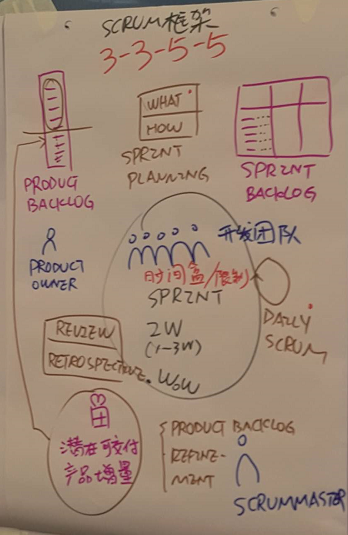 SCRUM框架
3-3-5-5
WHAT
HOW
SPRINT
PLANNING
PRODUCT
BACKLOG
SPRINT
BACKLOG
开发团队
PRODUCT
OWNER
时间盒/限制
SPRINT
2W
(1-3W)
DAILY
SCRUM
REVIEW
RETROSPECTIVE
WoW
潜在可交付
产品增量
PRODUCT BACKLOG
REFINE-
MENT
SCRUMMASTER